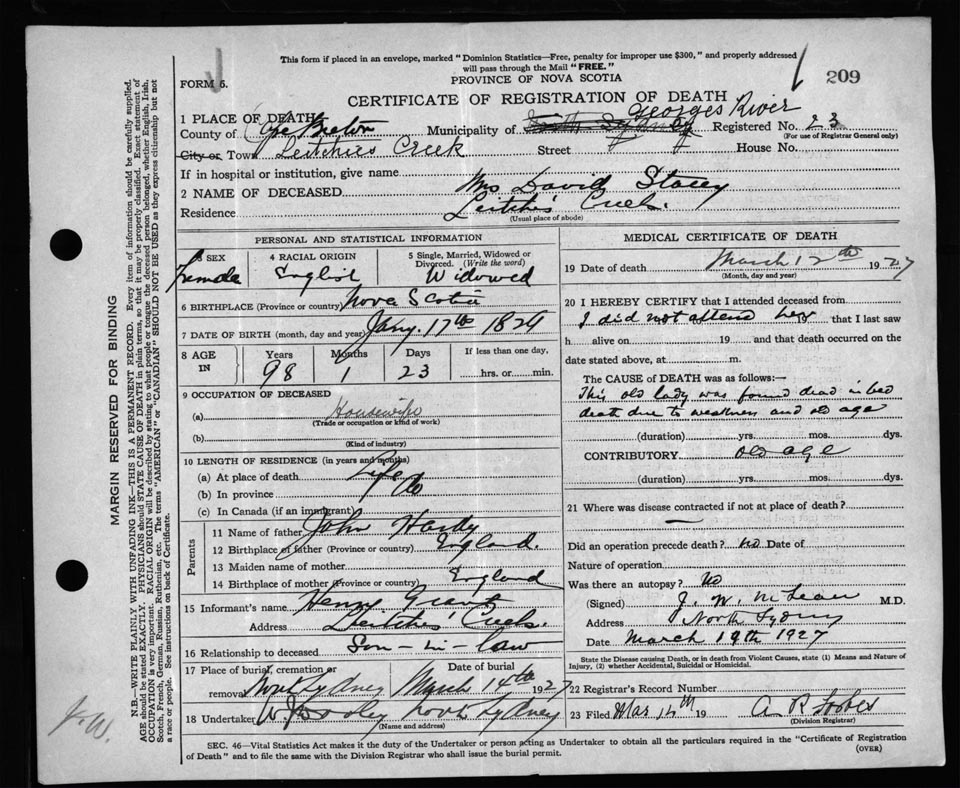 This form if placed in an envelope, marked "Dominion Statistics—Free, penalty for improper use $300," and properly addressed
will pass through the Mail "FREE."
FORM 6.
PROVINCE OF NOVA SCOTIA
209
CERTIFICATE OF REGISTRATION OF DEATH
1 PLACE OF DEATH
Georges River
County of Cape Breton Municipality of North Sydney Registered No. 23
(For use of Registrar General only)
City or Town Leitchies Creek Street House No.
If in hospital or institution, give name
2 NAME OF DECEASED Mrs David Stacey
Residence Leitchis Creek.
(Usual place of abode)
PERSONAL AND STATISTICAL INFORMATION
3 SEX 4 RACIAL ORIGIN 5 Single, Married, Widowed or Divorced. (Write the word)
Female English Widowed
6 BIRTHPLACE (Province or country) Nova Scotia
7 DATE OF BIRTH (month, day and year) Jany. 17th 1829
8 AGE IN Years Months Days If less than one day,
98 1 23 hrs. or min.
9 OCCUPATION OF DECEASED
(a) Housewife
(Trade or occupation or kind of work)
(b)
(Kind of industry)
10 LENGTH OF RESIDENCE (in years and months)
(a) At place of death Life
(b) In province Do
(c) In Canada (if an immigrant)
Parents
11 Name of father John Hardy
12 Birthplace of father (Province or country) England.
13 Maiden name of mother
14 Birthplace of mother (Province or country) England
15 Informant's name Henry Grant
Address Leitchies Creek.
16 Relationship to deceased Son-in-law
17 Place of burial, cremation or Date of burial
removal North Sydney March 14th 1927
18 Undertaker W. J. Dooley North Sydney
(Name and address)
MEDICAL CERTIFICATE OF DEATH
19 Date of death March 12th 1927
(Month, day and year)
20 I HEREBY CERTIFY that I attended deceased from
I did not attend her that I last saw
h alive on 19 and that death occurred on the
date stated above, at m.
The CAUSE of DEATH was as follows:—
This old lady was found dead in bed
death due to weakness and old age
(duration) yrs. mos. dys.
CONTRIBUTORY old age
(duration) yrs. mos. dys.
21 Where was disease contracted if not at place of death?
Did an operation precede death? No Date of
Nature of operation
Was there an autopsy? No
(Signed) J. W. McLean M.D.
Address North Sydney
Date March 19th 1927
State the Disease causing Death, or in death from Violent Causes, state (1) Means and Nature of
Injury, (2) whether Accidental, Suicidal or Homicidal.
22 Registrar's Record Number
23 Filed Mar 14th 19 A R Forbes
(Division Registrar)
SEC. 46—Vital Statistics Act makes it the duty of the Undertaker or person acting as Undertaker to obtain all the particulars required in the "Certificate of Registration
of Death" and to file the same with the Division Registrar who shall issue the burial permit.
(OVER)
MARGIN RESERVED FOR BINDING
N.B.—WRITE PLAINLY WITH UNFADING INK—THIS IS A PERMANENT RECORD. Every item of information should be carefully supplied.
AGE should be stated EXACTLY. PHYSICIANS should STATE CAUSE OF DEATH in plain terms, so that it may be properly classified. Exact statement of
OCCUPATION is very important. RACIAL ORIGIN will be described by stating to what people or tongue the deceased person belonged, whether English, Irish,
Scotch, French, German, Russian, Ruthenian, etc. The terms "AMERICAN" or "CANADIAN" SHOULD NOT BE USED as they express citizenship but not
a race or people. See instructions on back of Certificate.